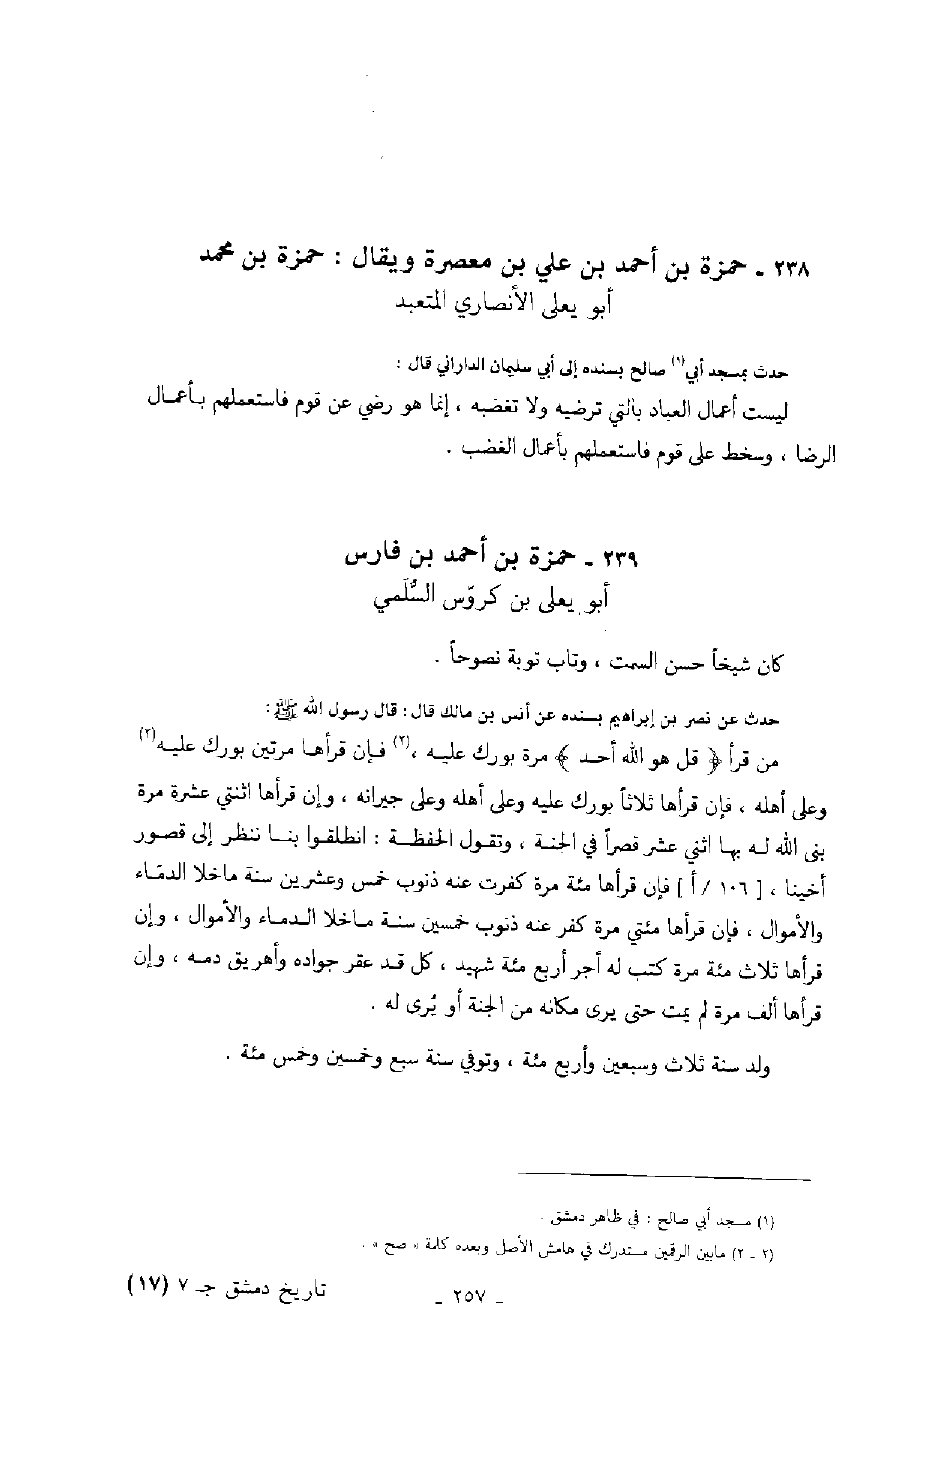 ٢٣٨ ـ حمزة بن أحمد بن علي بن معصرة ويقال : حمزة بن محمد
أبو يعلى الأنصاري المتعبد
حدث بمسجد أبي(١) صالح بسنده إلى أبي سليمان الداراني قال :
ليست أعمال العباد بالتي ترضيه ولا تغضبه ، إنما هو رضي عن قوم فاستعملهم بأعمال
الرضا ، وسخط على قوم فاستعملهم بأعمال الغضب .
٢٣٩ ـ حمزة بن أحمد بن فارس
أبو يعلى بن كروّس السُّلَمي
كان شيخاً حسن السمت ، وتاب توبة نصوحاً .
حدث عن نصر بن إبراهيم بسنده عن أنس بن مالك قال : قال رسول الله ﷺ :
من قرأ ﴿ قل هو الله أحد ﴾ مرة بورك عليه ،(٢) فإن قرأها مرتين بورك عليه(٢)
وعلى أهله ، فإن قرأها ثلاثاً بورك عليه وعلى أهله وعلى جيرانه ، وإن قرأها اثنتي عشرة مرة
بنى الله له بها اثني عشر قصراً في الجنة ، وتقول الحفظة : انطلقوا بنا ننظر إلى قصور
أخينا ، [ ١٠٦ / أ ] فإن قرأها مئة مرة كفرت عنه ذنوب خمس وعشرين سنة ماخلا الدماء
والأموال ، فإن قرأها مئتي مرة كفر عنه ذنوب خمسين سنة ماخلا الدماء والأموال ، وإن
قرأها ثلاث مئة مرة كتب له أجر أربع مئة شهيد ، كل قد عقر جواده وأهريق دمه ، وإن
قرأها ألف مرة لم يمت حتى يرى مكانه من الجنة أو يُرى له .
ولد سنة ثلاث وسبعين وأربع مئة ، وتوفي سنة سبع وخمسين وخمس مئة .
(١) مسجد أبي صالح : في ظاهر دمشق .
(٢ ـ ٢) مابين الرقين مستدرك في هامش الأصل وبعده كلمة « صح » .
ـ ٢٥٧ ـ تاريخ دمشق جـ ٧ (١٧)